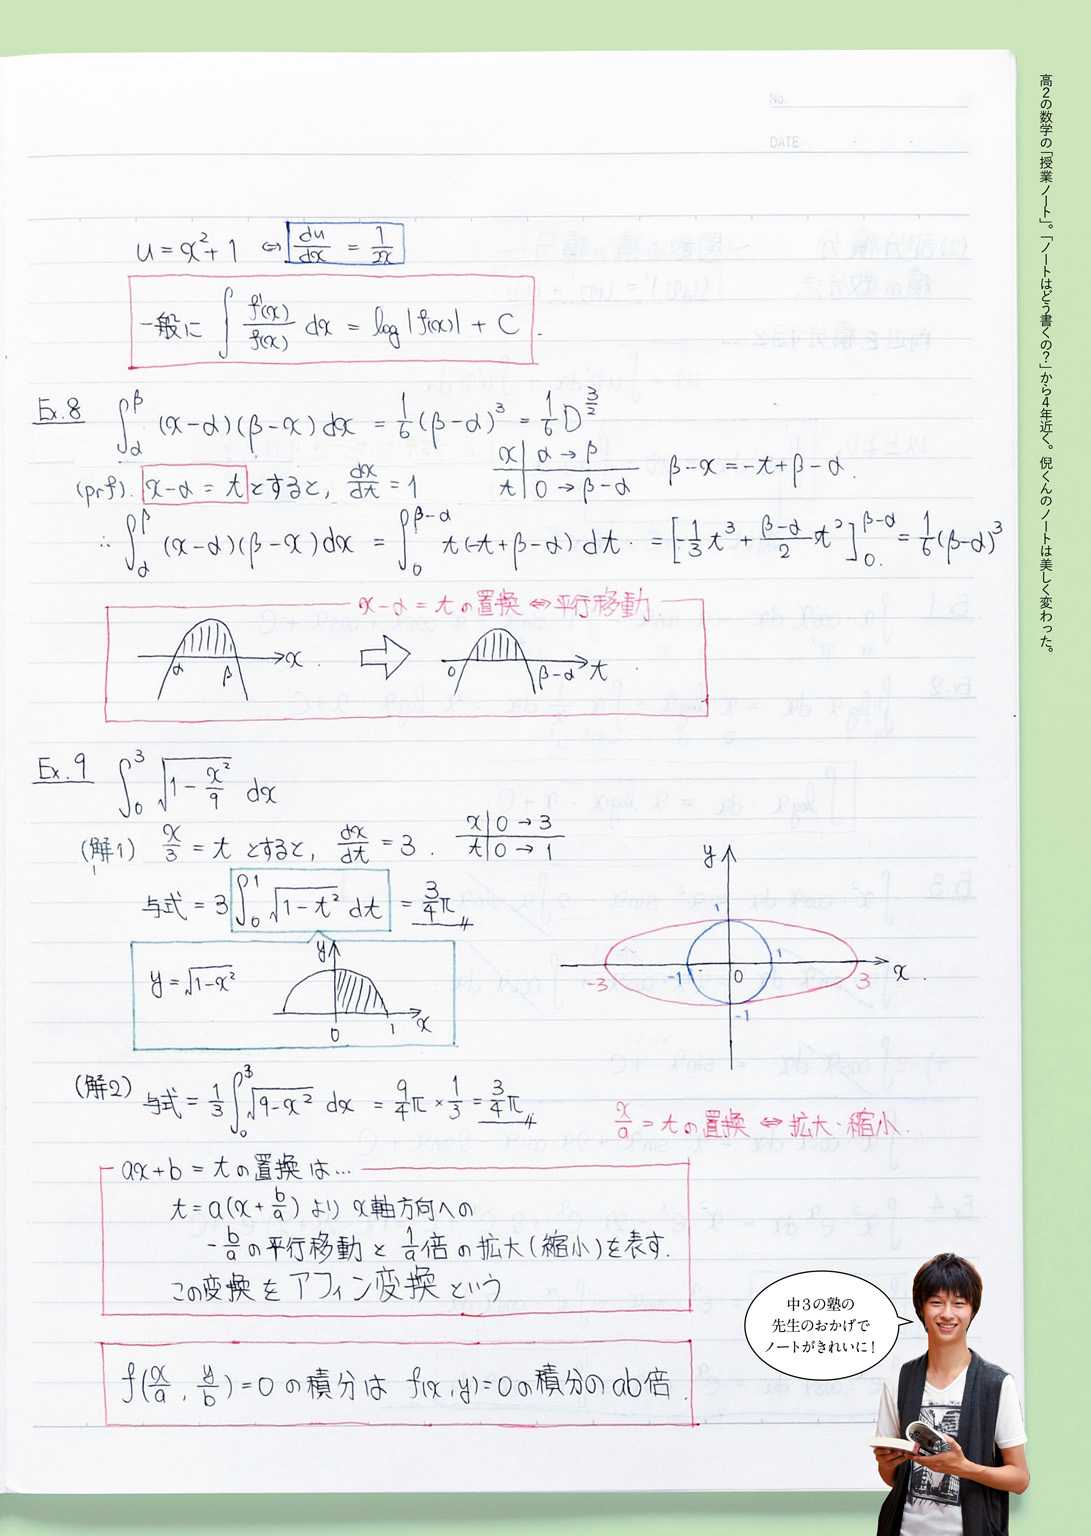 高2の数学の「授業ノート」。「ノートはどう書くの？」から4年近く。倪くんのノートは美しく変わった。
No.
DATE
u = x²+1 ⇔ du/dx = 1/2x
一般に ∫ f'(x)/f(x) dx = log|f(x)| + C .
Ex.8 ∫_α^β (x-α)(β-x)dx = 1/6(β-α)³ = 1/6 D^(3/2)
(prf). x-α = t とすると, dx/dt = 1
x | α → β
t | 0 → β-α
β-x = -t+β-α .
∴ ∫_α^β (x-α)(β-x)dx = ∫_0^(β-α) t(-t+β-α) dt. = [-1/3 t³ + (β-α)/2 t²]_0^(β-α) = 1/6(β-α)³
x-α = t の置換 ⇔ 平行移動
α β x . 0 β-α t .
Ex.9 ∫_0^3 √(1 - x²/9) dx
(解1) x/3 = t とすると, dx/dt = 3 .
x | 0 → 3
t | 0 → 1
与式 = 3 ∫_0^1 √(1-t²) dt = 3/4 π
y = √(1-x²)
y
0 1 x
y
1
-3 -1 0 1 3 x .
-1
(解2) 与式 = 1/3 ∫_0^3 √(9-x²) dx = 9/4 π × 1/3 = 3/4 π
x/a = t の置換 ⇔ 拡大・縮小 .
ax+b = t の置換は…
t = a(x + b/a) より x軸方向への
-b/a の平行移動と 1/a倍の拡大(縮小)を表す.
この変換をアフィン変換という
f(x/a , y/b) = 0 の積分は f(x,y)=0の積分のab倍 .
中3の塾の
先生のおかげで
ノートがきれいに！